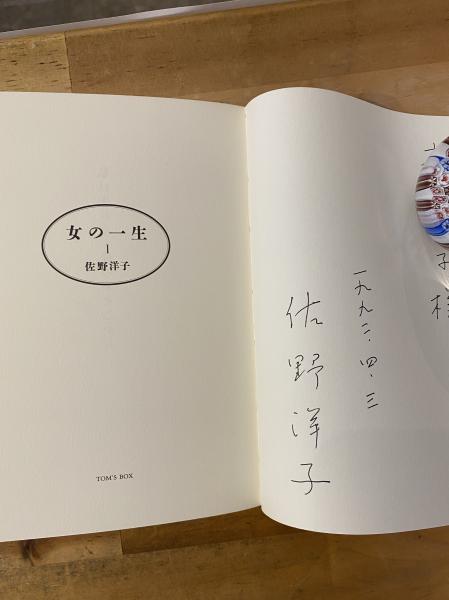 女の一生
I
佐野洋子
TOM'S BOX
子
一九九二・四・三
佐野洋子